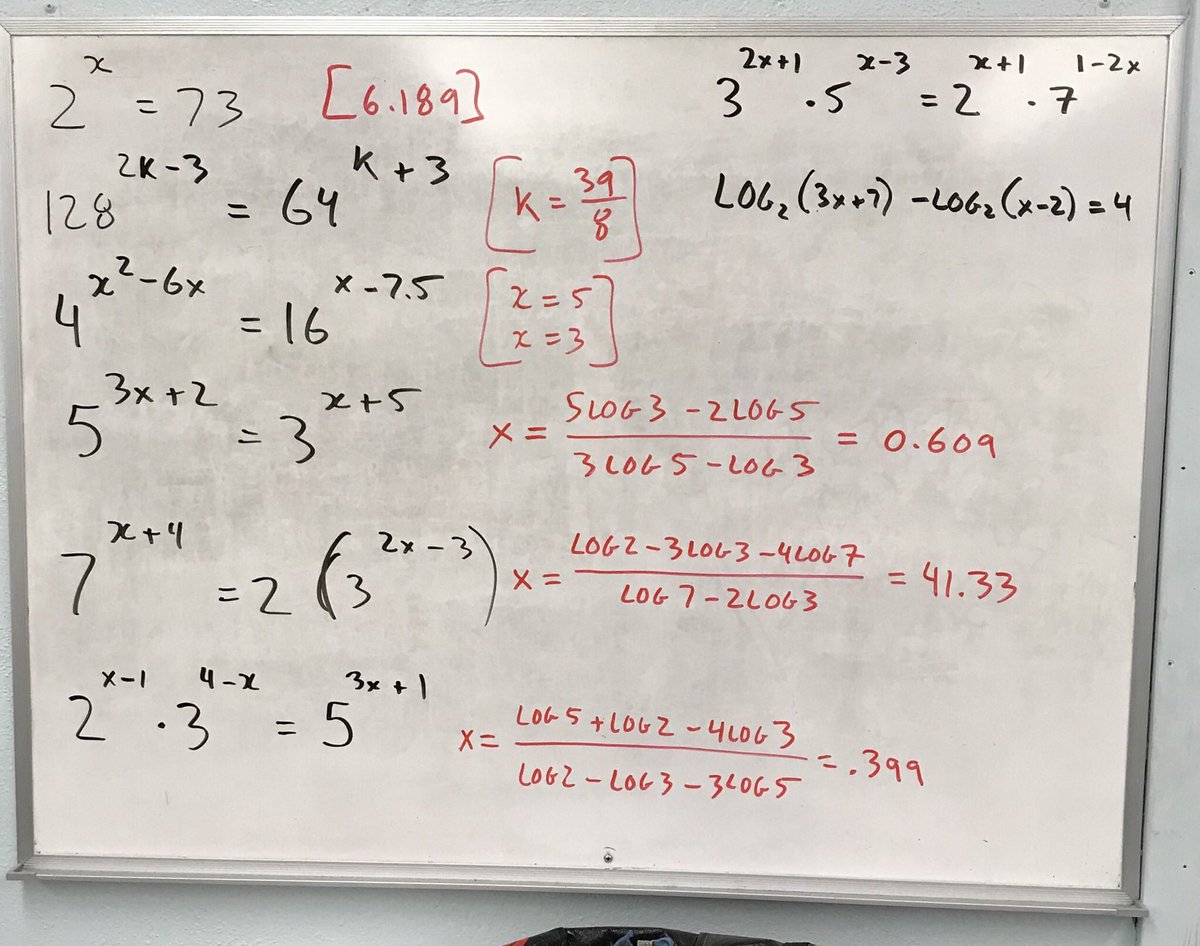 2^x = 73 [6.189]
128^(2k-3) = 64^(k+3) [k = 39/8]
4^(x^2-6x) = 16^(x-7.5) [x = 5 x = 3]
5^(3x+2) = 3^(x+5) x = (5LOG3 - 2LOG5)/(3LOG5 - LOG3) = 0.609
7^(x+4) = 2(3^(2x-3)) x = (LOG2 - 3LOG3 - 4LOG7)/(LOG7 - 2LOG3) = 41.33
2^(x-1) · 3^(4-x) = 5^(3x+1) x = (LOG5 + LOG2 - 4LOG3)/(LOG2 - LOG3 - 3LOG5) = .399
3^(2x+1) · 5^(x-3) = 2^(x+1) · 7^(1-2x)
LOG₂(3x+7) - LOG₂(x-2) = 4